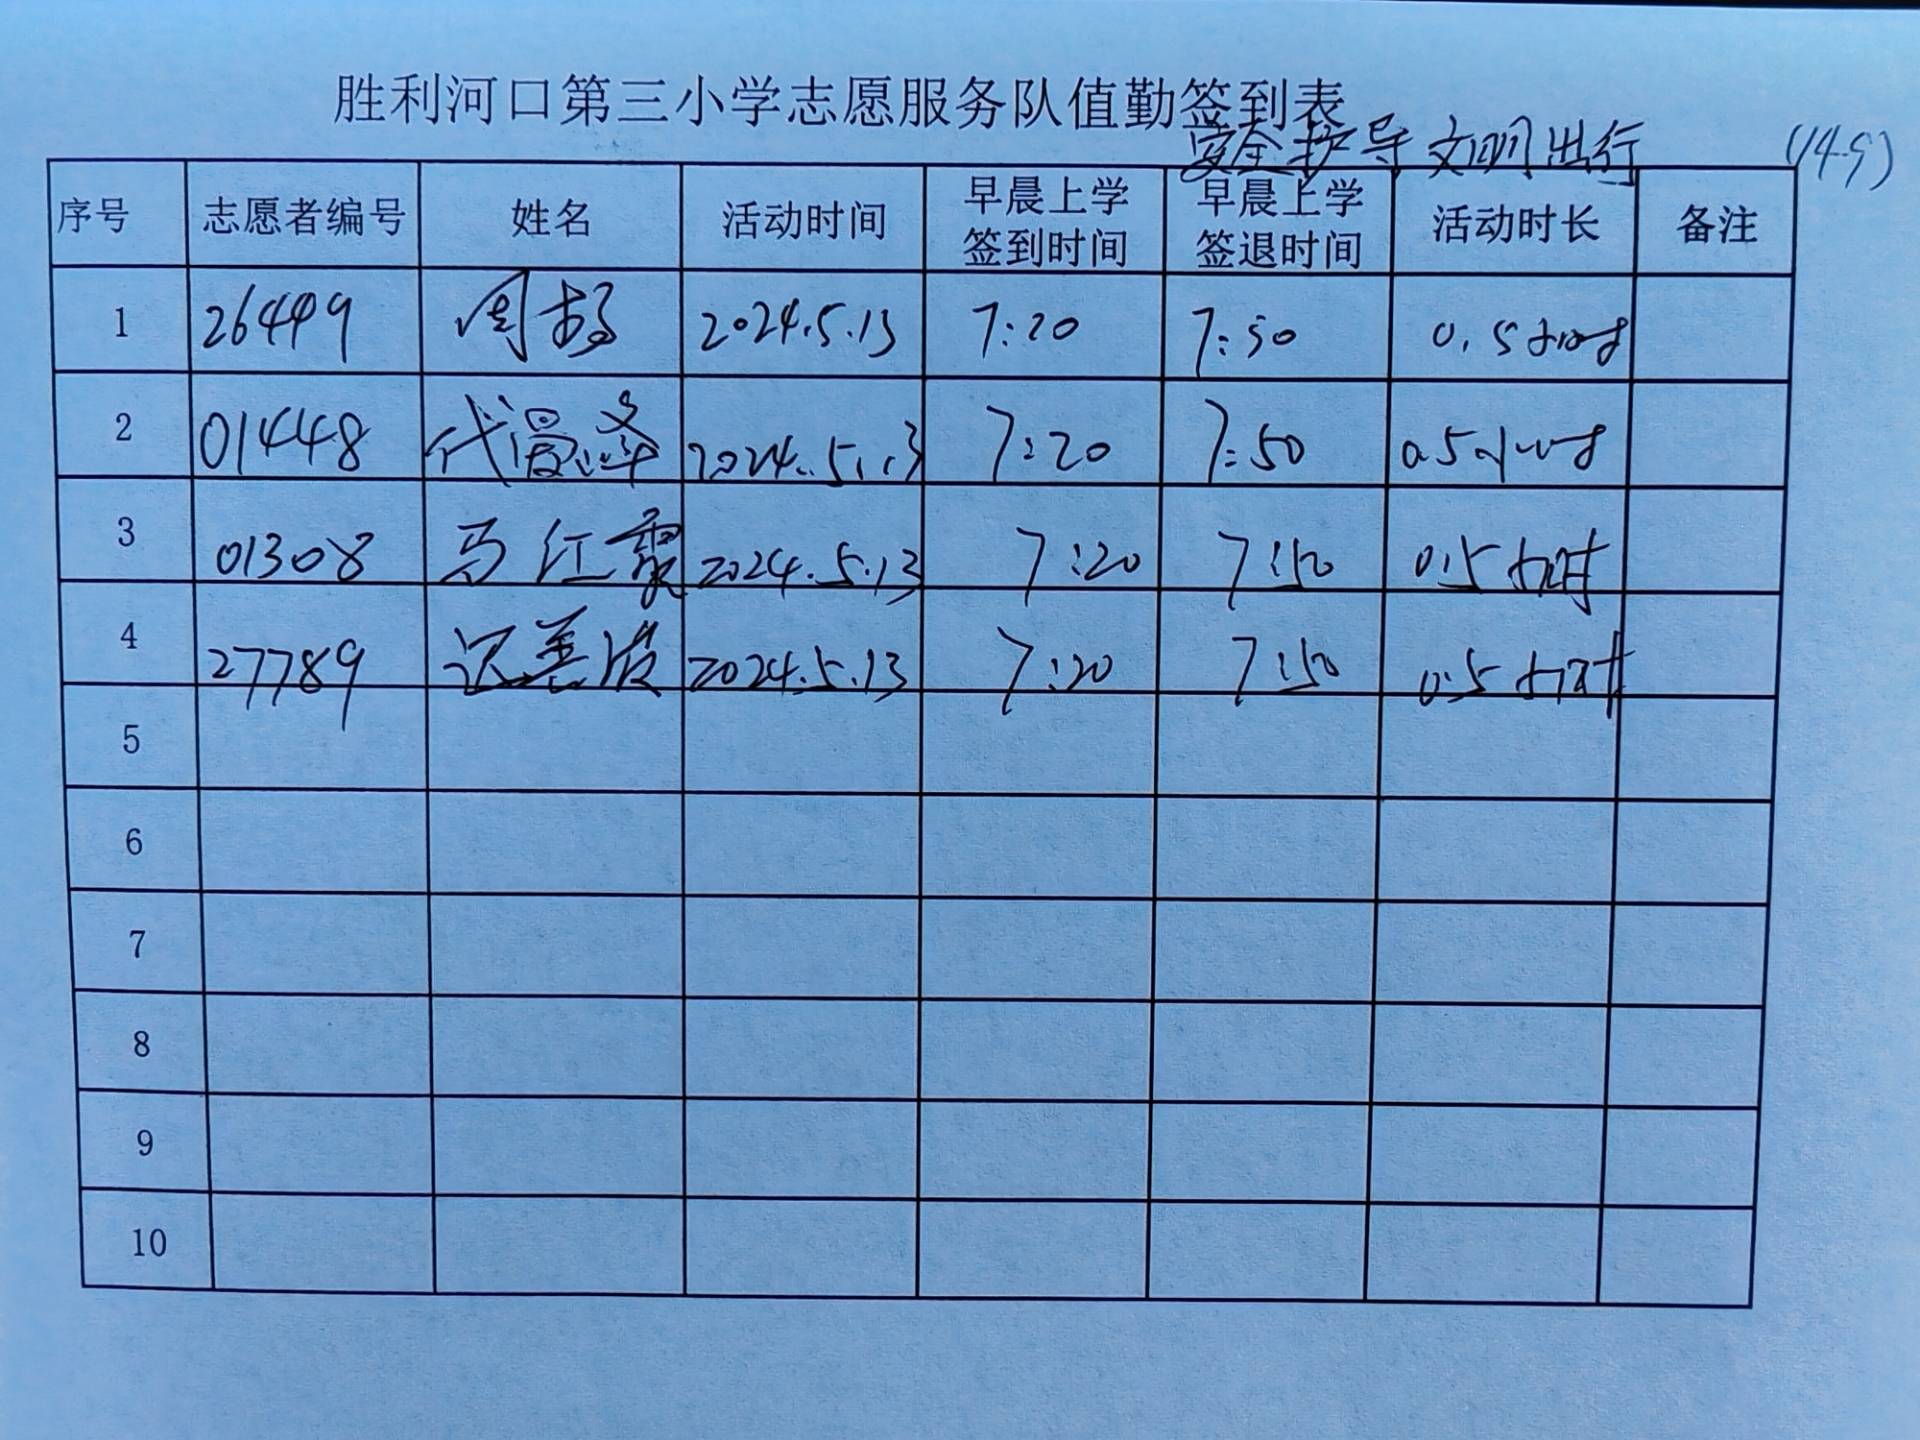 胜利河口第三小学志愿服务队值勤签到表
安全护导 文明出行
序号 志愿者编号 姓名 活动时间 早晨上学签到时间 早晨上学签退时间 活动时长 备注
1 26499 周杨 2024.5.13 7:20 7:50 0.5小时
2 01448 代漫泽 2024.5.13 7:20 7:50 0.5小时
3 01308 马红霞 2024.5.13 7:20 7:50 0.5小时
4 27789 善波 2024.5.13 7:20 7:50 0.5小时
5
6
7
8
9
10